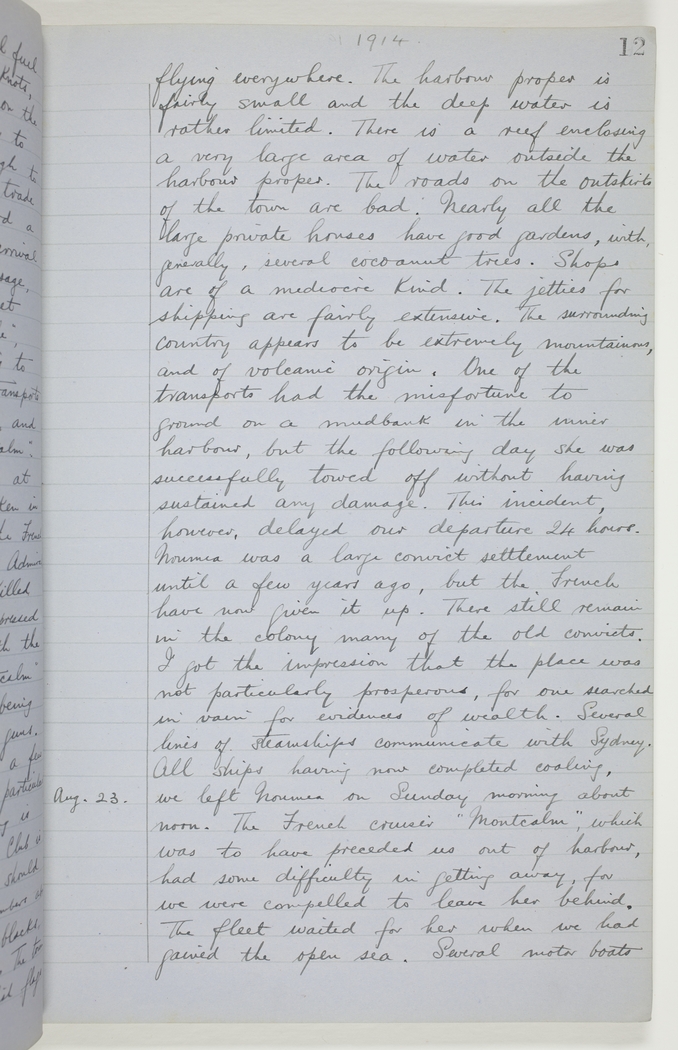 1914.
12
flying everywhere. The harbour proper is
fairly small and the deep water is
rather limited. There is a reef enclosing
a very large area of water outside the
harbour proper. The roads on the outskirts
of the town are bad. Nearly all the
large private houses have good gardens, with,
generally, several cocoanut trees. Shops
are of a mediocre kind. The jetties for
shipping are fairly extensive. The surrounding
country appears to be extremely mountainous,
and of volcanic origin. One of the
transports had the misfortune to
ground on a mudbank in the inner
harbour, but the following day she was
successfully towed off without having
sustained any damage. This incident,
however, delayed our departure 24 hours.
Noumea was a large convict settlement
until a few years ago, but the French
have now given it up. There still remain
in the colony many of the old convicts.
I got the impression that the place was
not particularly prosperous, for one searched
in vain for evidences of wealth. Several
lines of steamships communicate with Sydney.
All ships having now completed coaling,
Aug. 23. we left Noumea on Sunday morning about
noon. The French cruiser "Montcalm", which
was to have preceded us out of harbour,
had some difficulty in getting away, for
we were compelled to leave her behind.
The fleet waited for her when we had
gained the open sea. Several motor boats